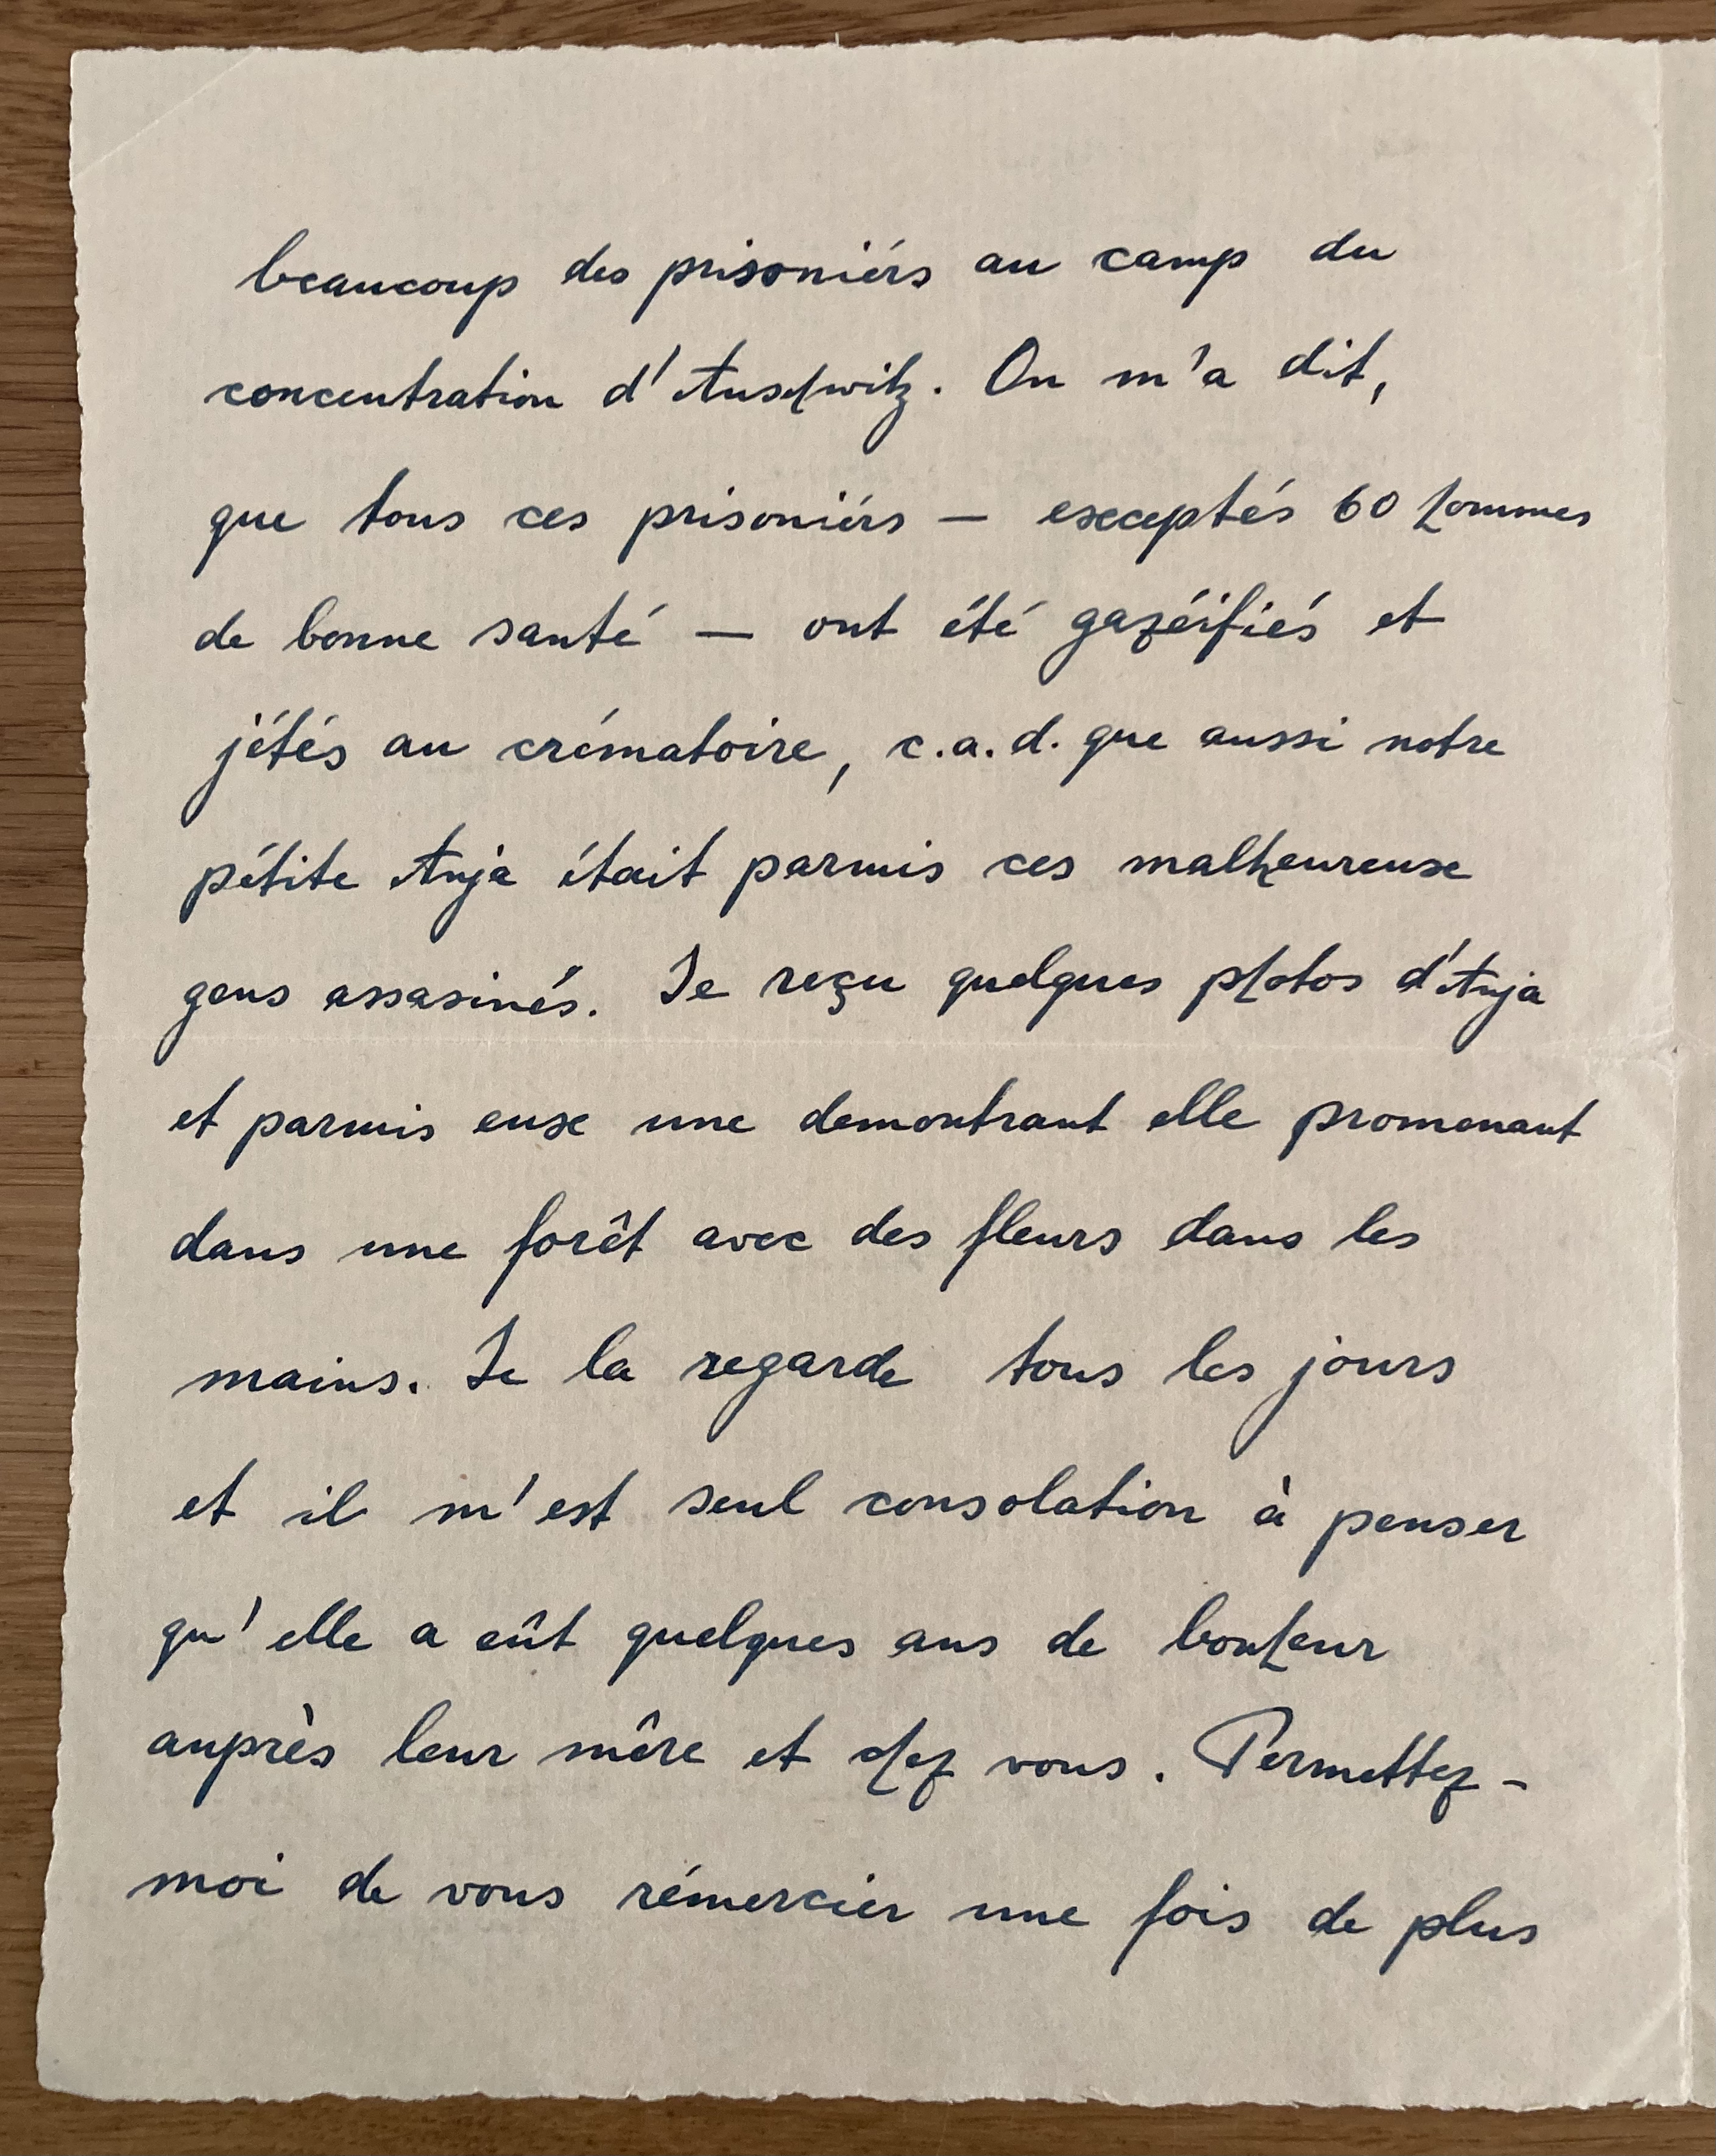 beaucoup des prisoniérs au camp du
concentration d'Auschwitz. On m'a dit,
que tous ces prisoniérs — exceptés 60 hommes
de bonne santé — ont été gazéifiés et
jétés au crématoire, c.a.d. que aussi notre
pétite Anja était parmis ces malheureuse
gens assasinés. Je reçu quelques photos d'Anja
et parmis eux une demontrant elle promenant
dans une forêt avec des fleurs dans les
mains. Je la regarde tous les jours
et il m'est seul consolation à penser
qu'elle a eût quelques ans de bonheur
auprès leur mêre et chez vous. Permettez-
moi de vous rémercier une fois de plus